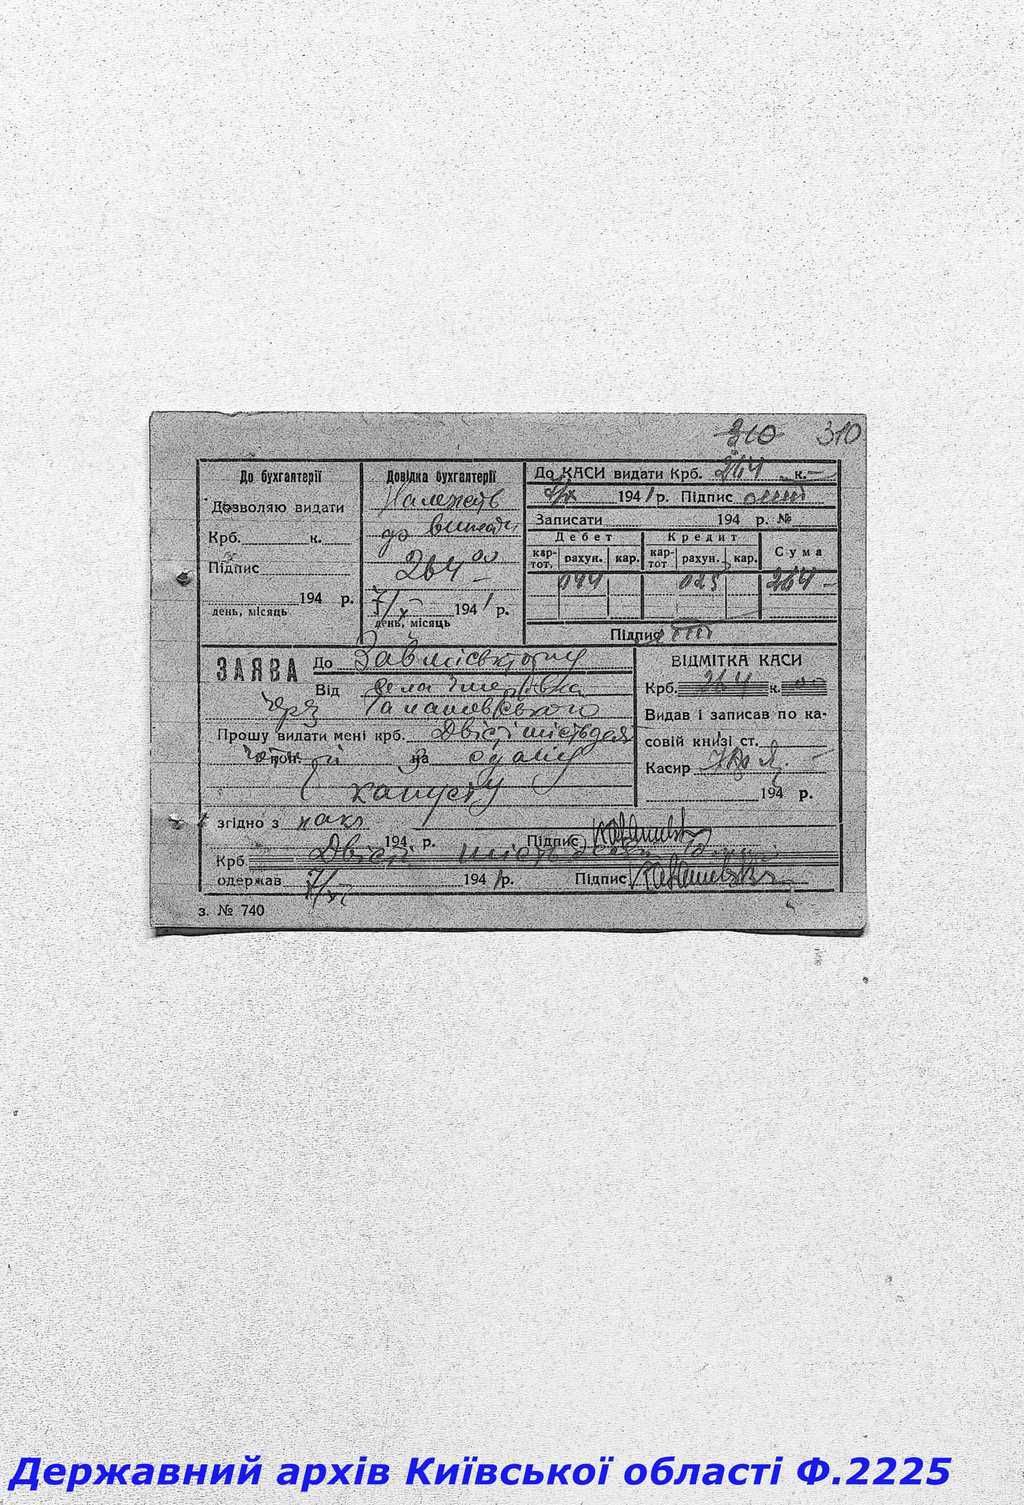 310 310
До бухгалтерії
Дозволяю видати
Крб. к.
Підпис
194 р.
день, місяць
Довідка бухгалтерії
Належить
до видачі
264 00
7/X 1941 р.
день, місяць
До КАСИ видати Крб. 264 к. —
7/X 1941 р. Підпис
Записати 194 р. №
Дебет Кредит Сума
кар-тот. рахун. кар. кар-тот рахун. кар.
044 023 264 —
Підпис
ЗАЯВА До Завмісвкторгу
Від села
через
Прошу видати мені крб. Двісті шістьдесят
чотири на здану
капусту
згідно з накл
194 р. Підпис
Крб. Двісті шістьдесят
одержав 7/X 1941 р. Підпис
ВІДМІТКА КАСИ
Крб. 264 к. 00
Видав і записав по ка-
совій книзі ст.
Касир
194 р.
з. № 740
Державний архів Київської області Ф.2225